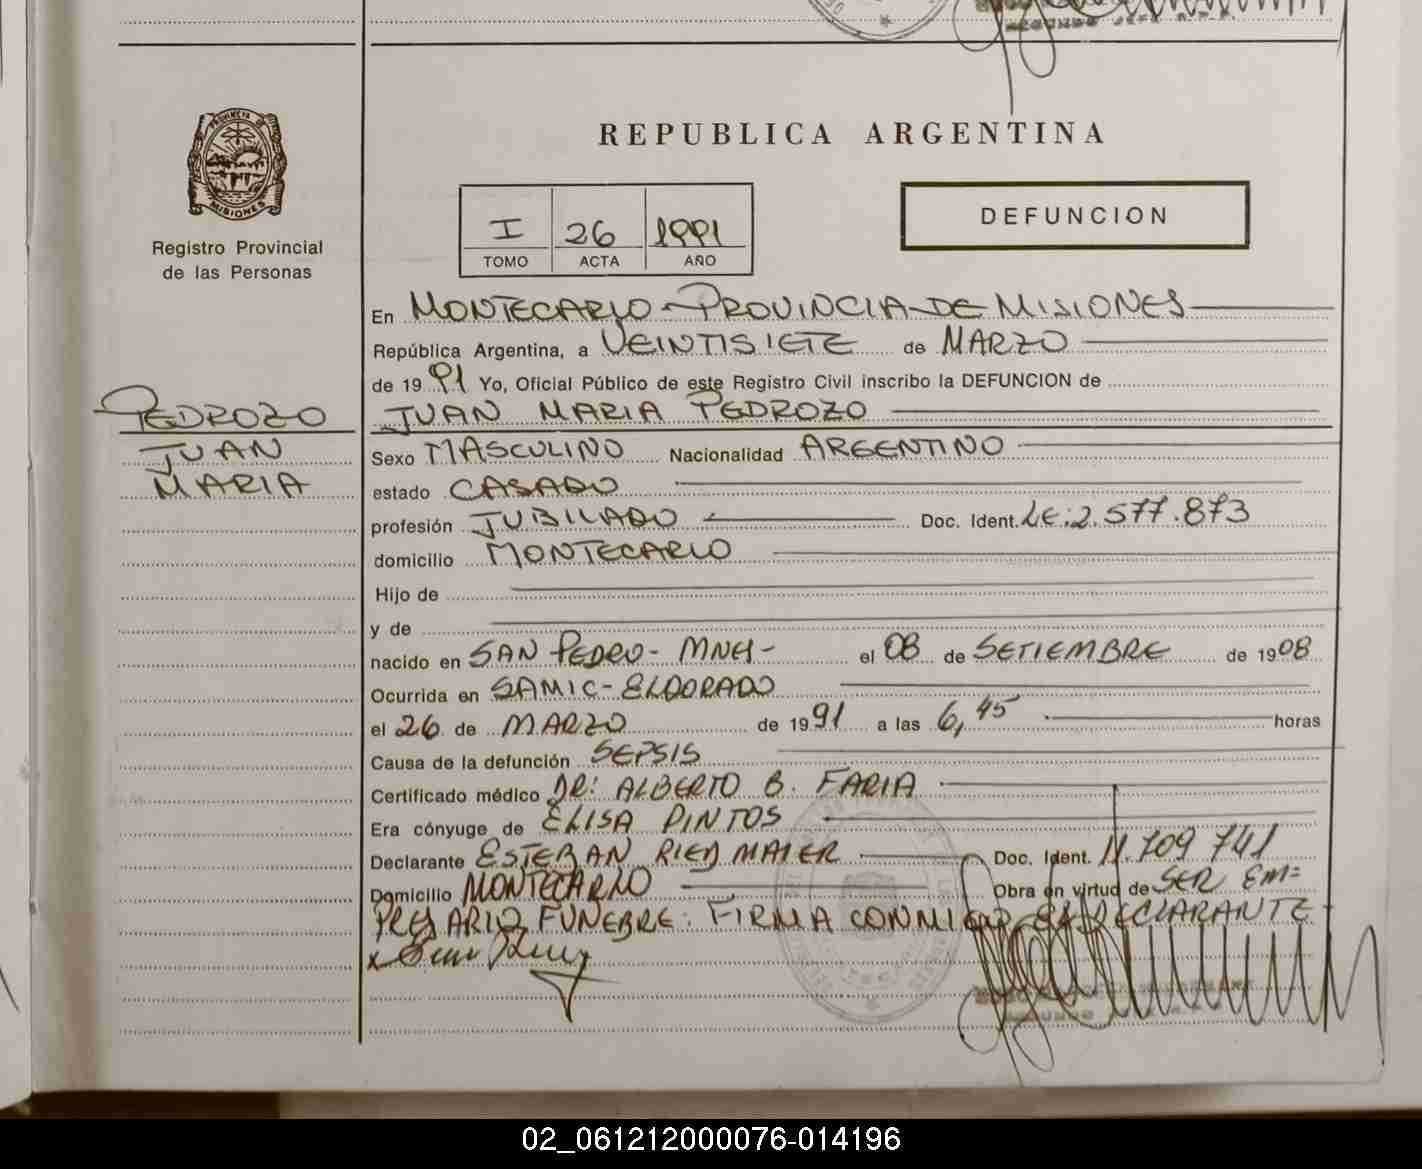 REPUBLICA ARGENTINA
PROVINCIA DE
MISIONES
Registro Provincial
de las Personas
DEFUNCION
I 26 1991
TOMO ACTA AÑO
En MONTECARLO - PROVINCIA DE MISIONES
República Argentina, a VEINTISIETE de MARZO
de 1991 Yo, Oficial Público de este Registro Civil inscribo la DEFUNCION de
PEDROZO
JUAN
MARIA
JUAN MARIA PEDROZO
Sexo MASCULINO Nacionalidad ARGENTINO
estado CASADO
profesión JUBILADO Doc. Ident. LE: 2.577.873
domicilio MONTECARLO
Hijo de
y de
nacido en SAN PEDRO - MNES - el 08 de SETIEMBRE de 1908
Ocurrida en SAMIC - ELDORADO
el 26 de MARZO de 1991 a las 6,45 horas
Causa de la defunción SEPSIS
Certificado médico DR: ALBERTO B. FARIA
Era cónyuge de ELISA PINTOS
Declarante ESTEBAN RIEDMAIER Doc. Ident. 11.709 741
Domicilio MONTECARLO Obra en virtud de SER EM=
PRESARIO FUNEBRE: FIRMA CONMIGO EL DECLARANTE -
02_061212000076-014196